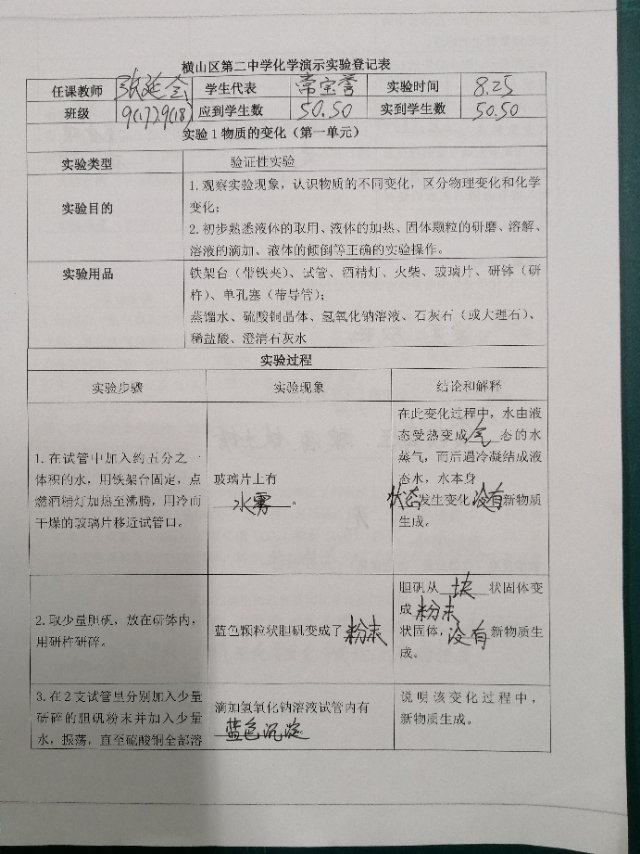 横山区第二中学化学演示实验登记表
任课教师 张延会 学生代表 常宝誉 实验时间 8.25
班级 9(17)9(18) 应到学生数 50.50 实到学生数 50.50
实验 1 物质的变化（第一单元）
实验类型 验证性实验
实验目的
1.观察实验现象，认识物质的不同变化，区分物理变化和化学
变化；
2.初步熟悉液体的取用、液体的加热、固体颗粒的研磨、溶解、
溶液的滴加、液体的倾倒等正确的实验操作。
实验用品
铁架台（带铁夹）、试管、酒精灯、火柴、玻璃片、研钵（研
杵）、单孔塞（带导管）；
蒸馏水、硫酸铜晶体、氢氧化钠溶液、石灰石（或大理石）、
稀盐酸、澄清石灰水
实验过程
实验步骤 实验现象 结论和解释
1.在试管中加入约五分之一
体积的水，用铁架台固定，点
燃酒精灯加热至沸腾，用冷而
干燥的玻璃片移近试管口。
玻璃片上有
水雾。
在此变化过程中，水由液
态受热变成气态的水
蒸气，而后遇冷凝结成液
态水，水本身
状态发生变化没有新物质
生成。
2.取少量胆矾，放在研钵内，
用研杵研碎。
蓝色颗粒状胆矾变成了粉末
胆矾从块状固体变
成粉末
状固体，没有新物质生
成。
3.在 2 支试管里分别加入少量
研碎的胆矾粉末并加入少量
水，振荡，直至硫酸铜全部溶
滴加氢氧化钠溶液试管内有
蓝色沉淀
说明该变化过程中，
新物质生成。